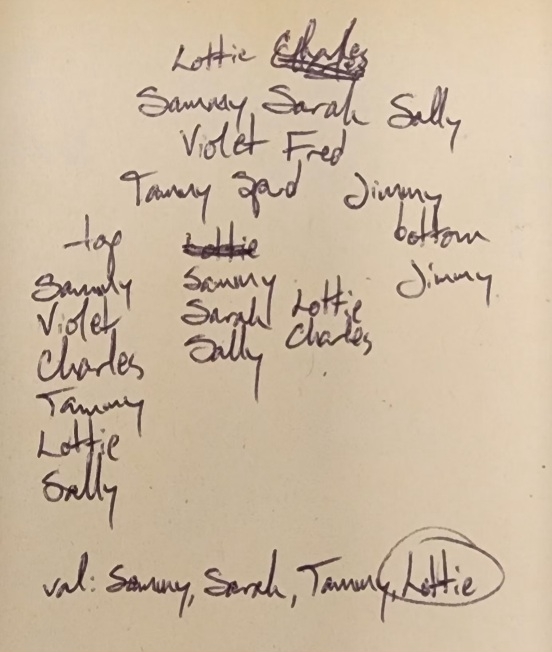 Lottie Charles
Sammy Sarah Sally
Violet Fred
Tammy Jimmy
top Lottie bottom
Sammy Sammy Jimmy
Violet Sarah Lottie
Charles Sally Charles
Tammy
Lottie
Sally
val: Sammy, Sarah, Tammy, Lottie